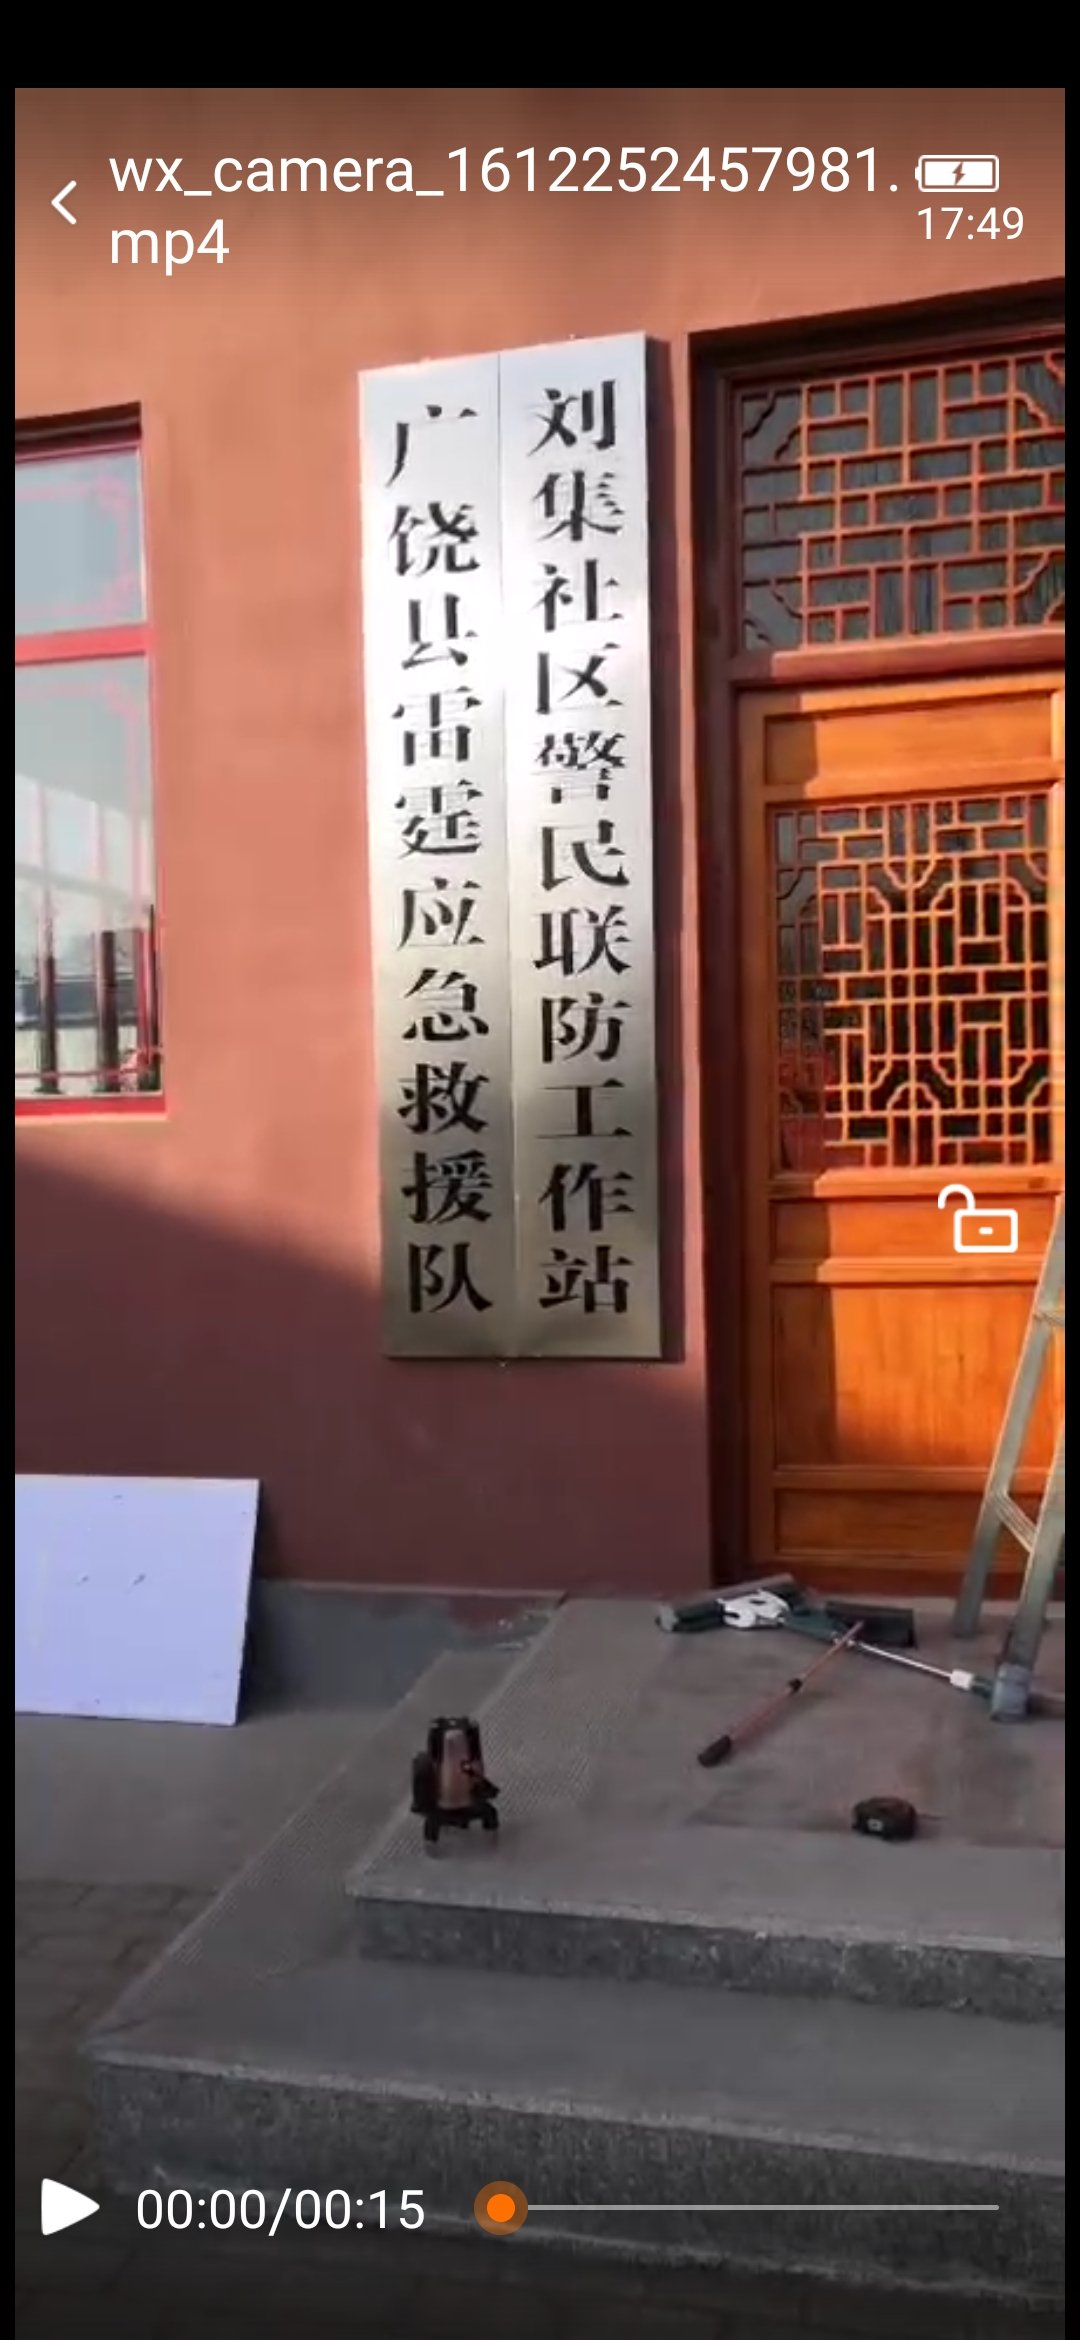 wx_camera_1612252457981.
mp4
17:49
刘集社区警民联防工作站
广饶县雷霆应急救援队
00:00/00:15